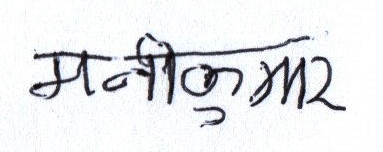 मनीकुमार